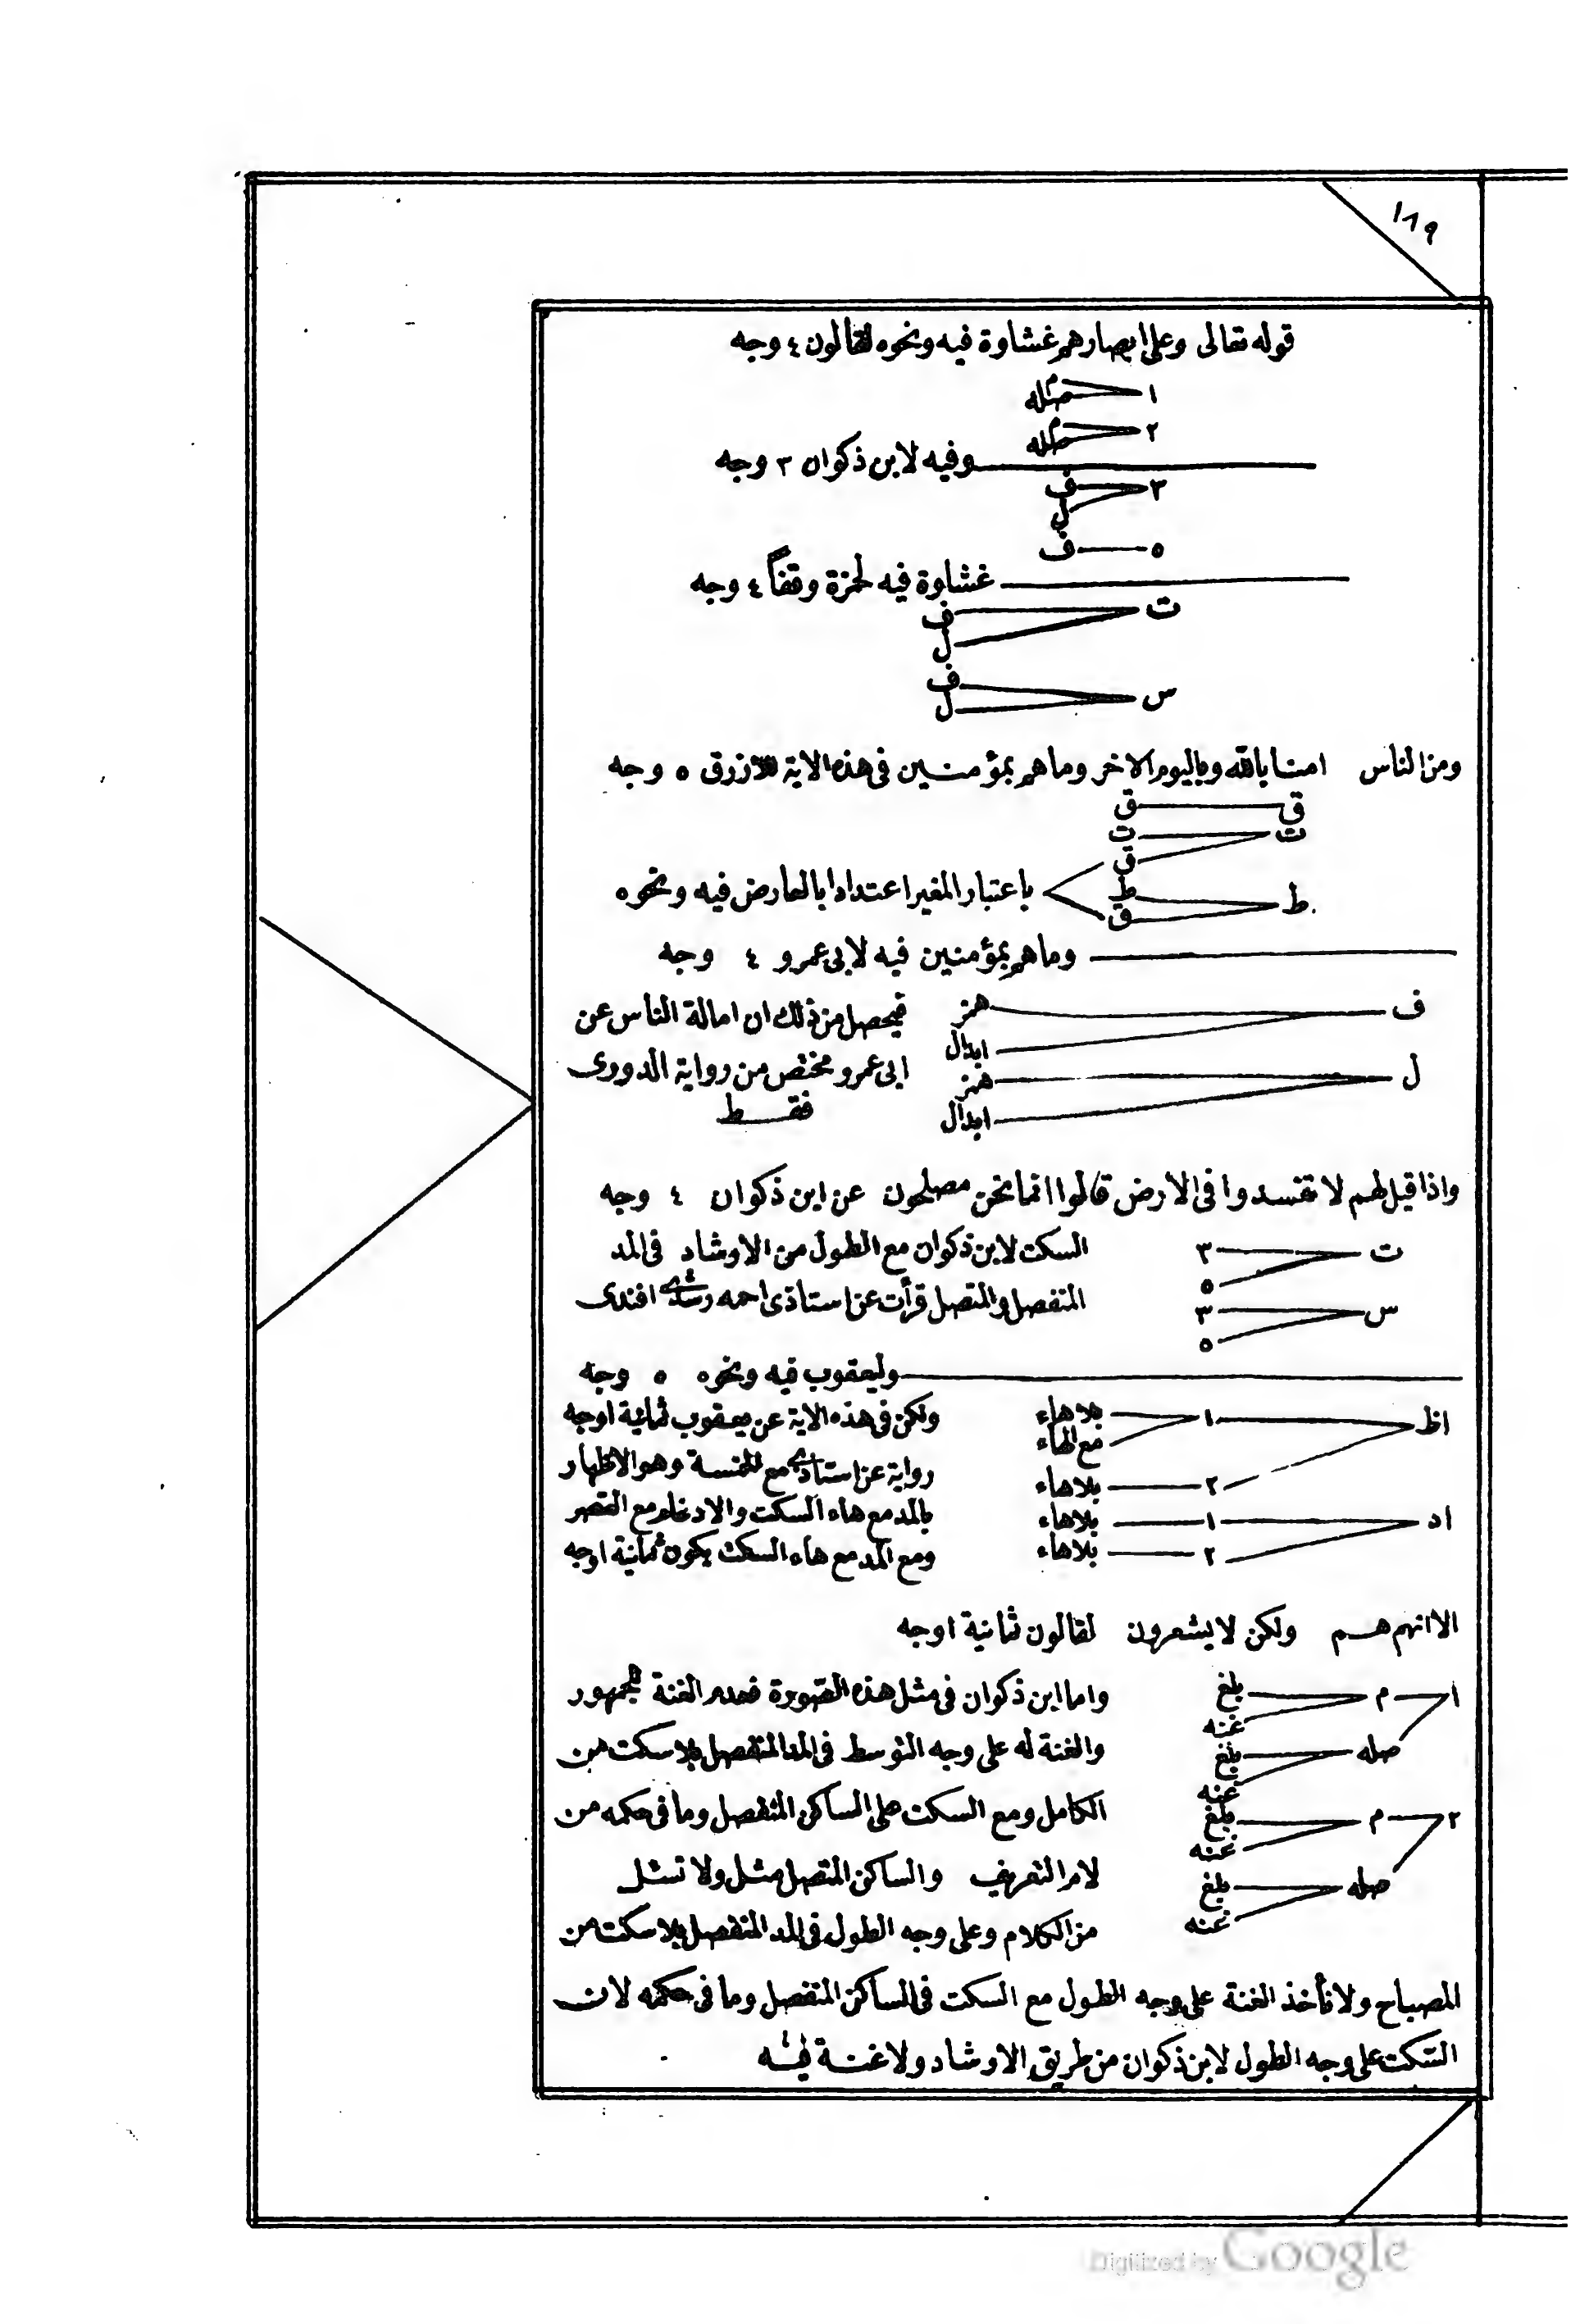 ١٨٩
قوله تعالى وعلى ابصارهم غشاوة فيه ونحوه لقالون ٤ وجه
١ م
صله
٢ م
صله
وفيه لابن ذكوان ٣ وجه
٣ ف
ل
٥ ف
غشاوة فيه لحمزة وقفاً ٤ وجه
ت ف
ل
س ف
ل
ومن الناس امنا بالله وباليوم الاخر وما هم بمؤمنين فى هذه الاية للازرق ٥ وجه
ق ق
ت ت
ق
ط ط باعتبار المغير اعتدادا بالعارض فيه ونحوه
ق
وما هم بمؤمنين فيه لابى عمرو ٤ وجه
ف همز فيحصل من ذلك ان امالة الناس عن
ابدال
ل همز ابى عمرو مختص من رواية الدورى
ابدال فقط
واذا قيل لهم لا تفسدوا فى الارض قالوا انما نحن مصلحون عن ابن ذكوان ٤ وجه
ت ٣ السكت لابن ذكوان مع الطول من الارشاد فى المد
٥
س ٣ المنفصل والمتصل قرأت عن استاذى احمد رشدى افندى
٥
وليعقوب فيه ونحوه ٥ وجه
اظ ١ بلاهاء ولكن فى هذه الاية عن يعقوب ثمانية اوجه
مع الهاء
٢ بلاهاء رواية عن استاذى مع الخمسة وهو الاظهار
اد ١ بلاهاء بالمد مع هاء السكت والادغام مع القصر
٢ بلاهاء ومع المد مع هاء السكت يكون ثمانية اوجه
الا انهم هم ولكن لا يشعرون لقالون ثمانية اوجه
١ م بلغ واما ابن ذكوان فى مثل هذه الصورة فعدم الغنة للجمهور
غنه
صله بلغ والغنة له على وجه التوسط فى المد المنفصل بلا سكت من
غنه
٢ م بلغ الكامل ومع السكت على الساكن المنفصل وما فى حكمه من
غنه
صله بلغ لام التعريف والساكن المتصل مثل ولا تسئل
غنه من الكلام وعلى وجه الطول فى المد المنفصل بلا سكت من
المصباح ولا نأخذ الغنة على وجه الطول مع السكت فى الساكن المنفصل وما فى حكمه لان
السكت على وجه الطول لابن ذكوان من طريق الارشاد ولا غنة فيه
Digitized by Google